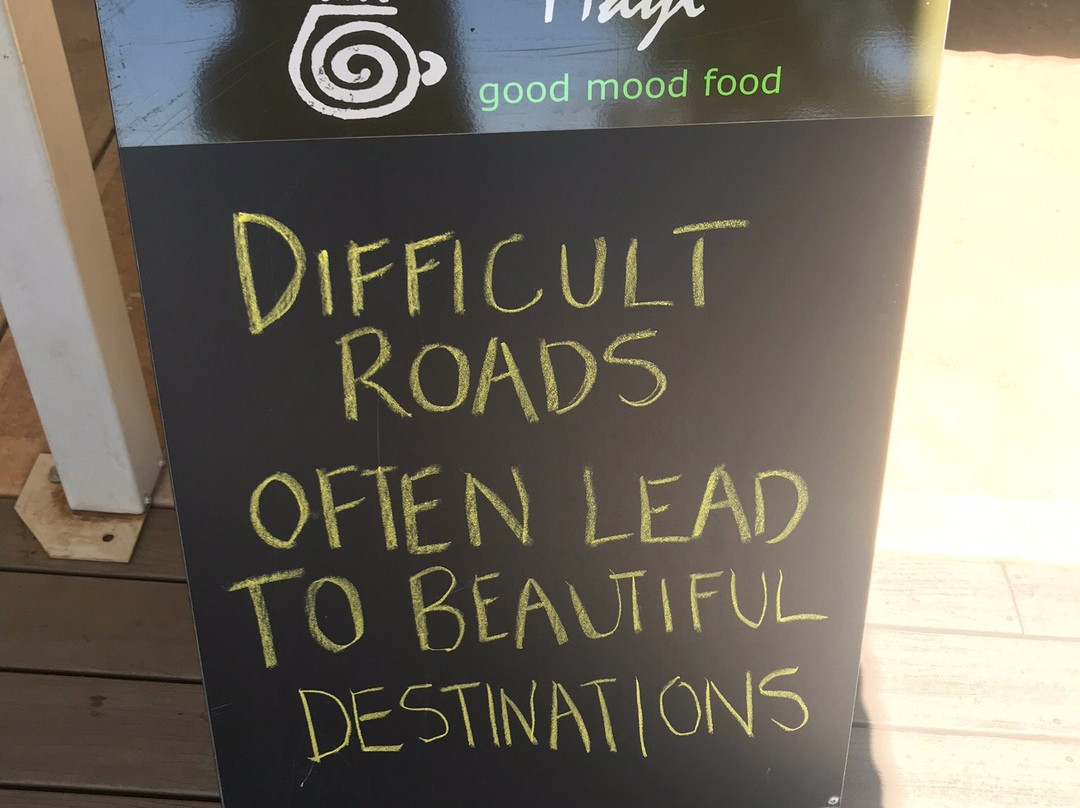 good mood food
DIFFICULT
ROADS
OFTEN LEAD
TO BEAUTIFUL
DESTINATIONS